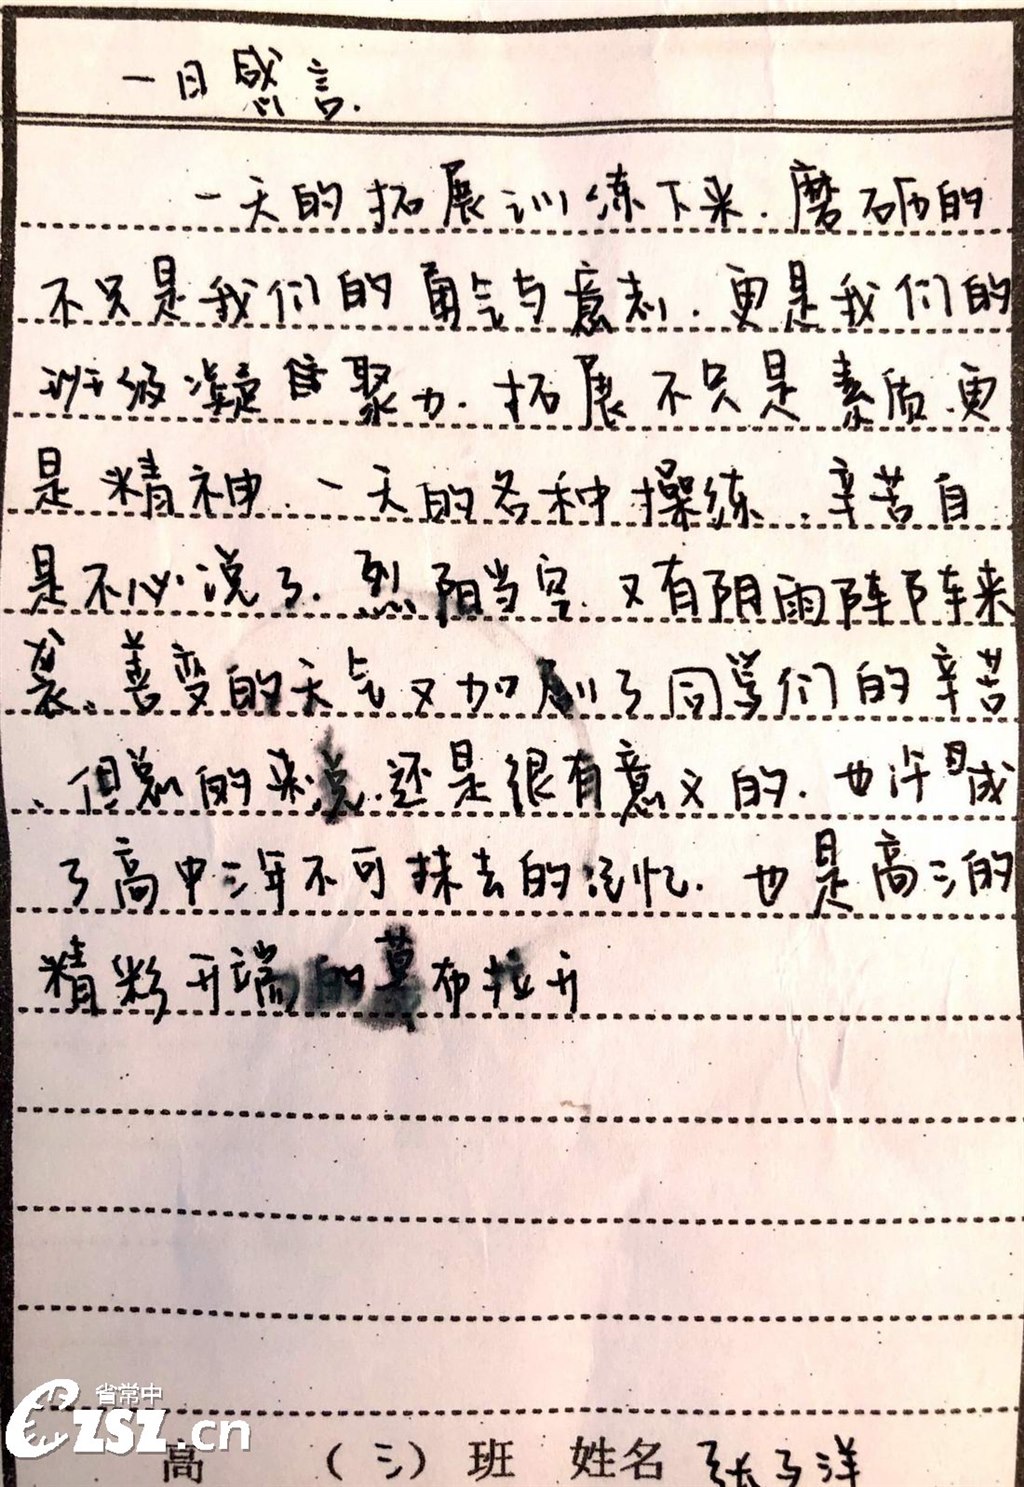 一日感言.
一天的拓展训练下来.磨砺的
不只是我们的勇气与意志.更是我们的
班级凝聚力.拓展不只是素质.更
是精神.一天的各种操练.辛苦自
是不必说了.烈阳当空.又有阴雨阵阵来
袭.善变的天气又加剧了同学们的辛苦
.但总的来说.还是很有意义的.也许
了高中三年不可抹去的记忆.也是高三的
精彩开端的幕布拉开
省常中
CZSZ.cn
高 (三) 班 姓名 张子洋